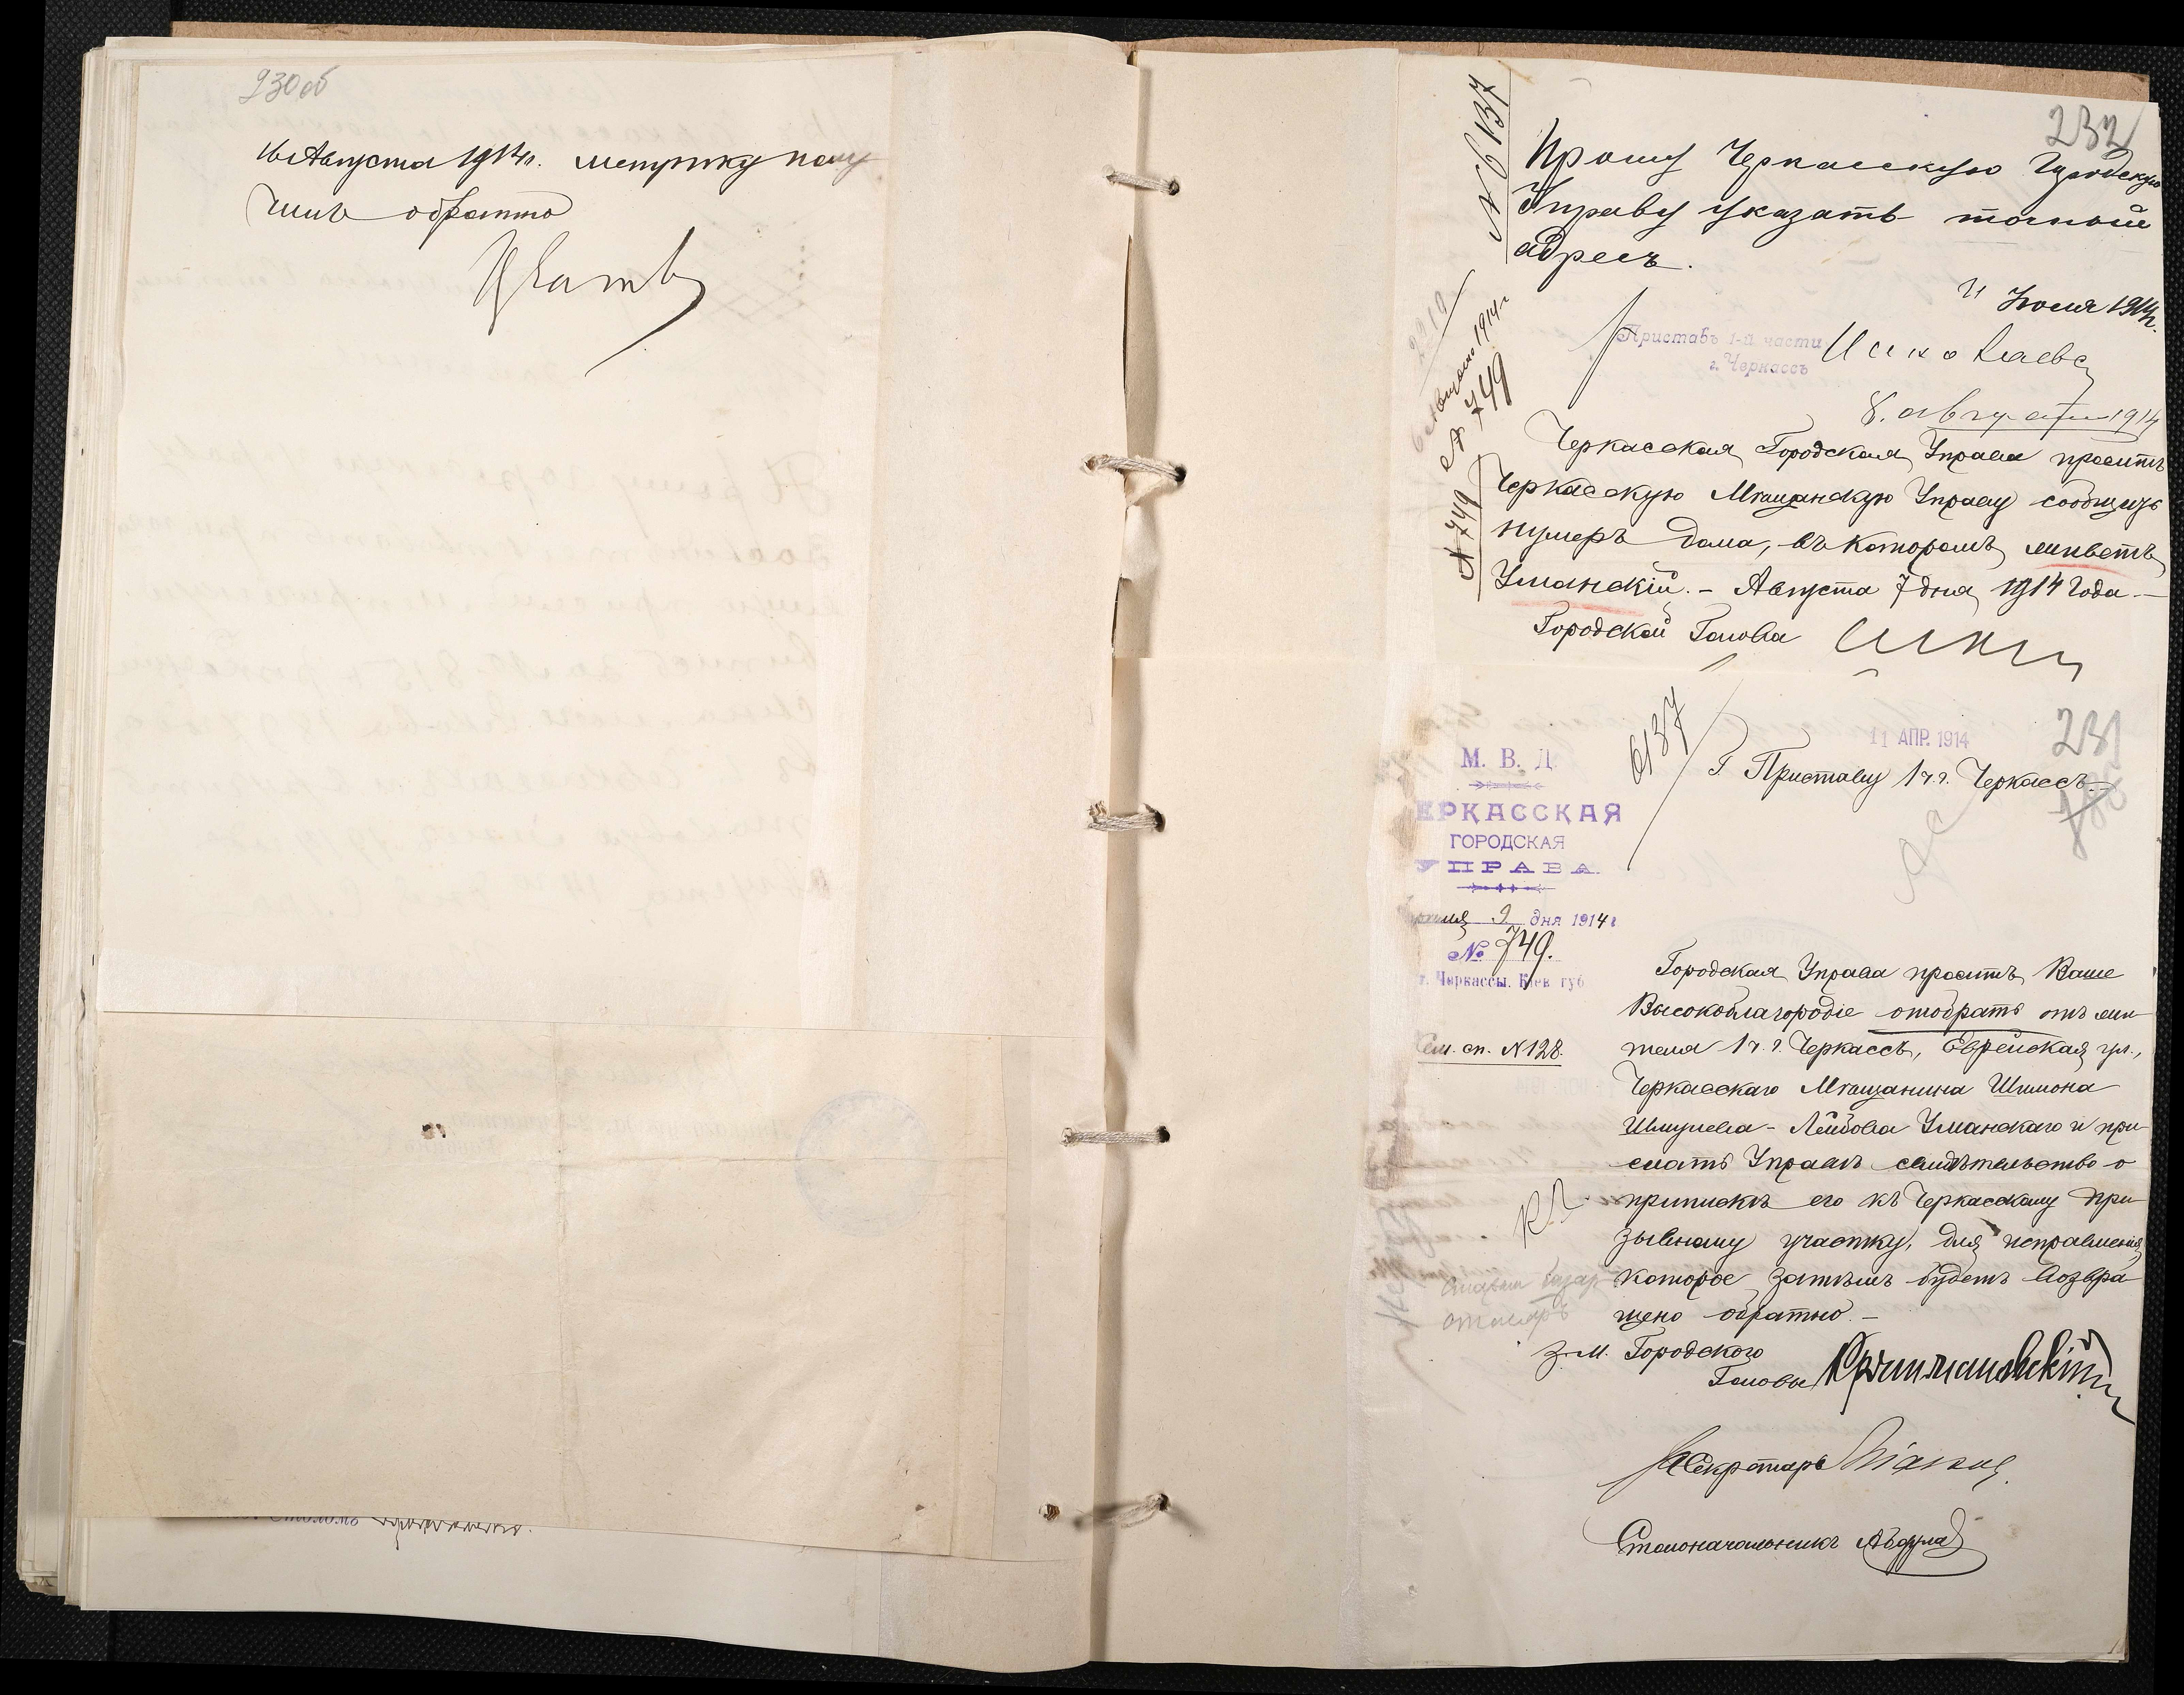 230 об
16 Августа 1914 г. метрику полу
чилъ обратно
232
№ 6137
Прошу Черкасскую Городскую
Управу указать точный
адресъ.
21 Июля 1914 г.
Приставъ 1-й части
г. Черкассъ
8. августа 1914
№ 749
Черкасская Городская Управа проситъ
Черкасскую Мѣщанскую Управу сообщить
нумеръ дома, въ которомъ живетъ
Уманскій. – Августа 7 дня 1914 года. –
Городской Голова
№ 749
6137
11 АПР. 1914
231
М. В. Д.
ЕРКАССКАЯ
ГОРОДСКАЯ
УПРАВА.
Г Приставу 1 ч. г. Черкассъ. –
Апрѣля 9 дня 1914 г
№ 749.
г. Черкассы. Кіев губ
Сем. сп. № 128.
Городская Управа проситъ Ваше
Высокоблагородіе отобрать отъ жи-
теля 1 ч. г. Черкассъ, Еврейская ул.,
Черкасскаго Мѣщанина Шимона
Шмулева-Лейбова Уманскаго и при-
слать Управѣ свидѣтельство о
припискѣ его къ Черкасскому при-
зывному участку, для исправленія
которое затѣмъ будетъ возвра-
щено обратно. –
З. м. Городского
Головы
Секретарь
Столоначальникъ